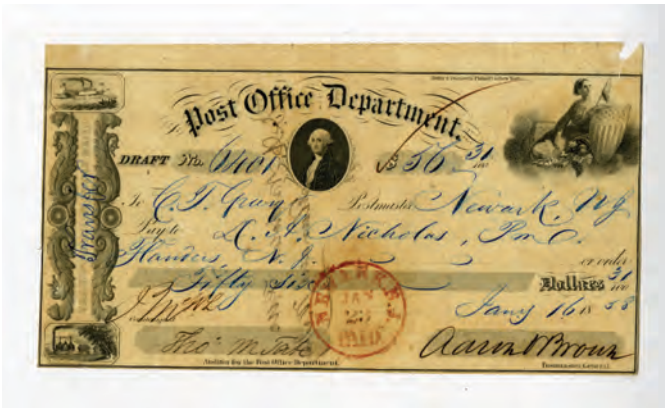 Post Office Department.
DRAFT No. 6401 $ 56 31/100
To C. T. Gray Postmaster Newark, NJ
Pay to L. A. Nicholas, P.M.
Flanders N. J. or order
Fifty Six Dollars 31/100
Jany 16 1858
Transfer
NEWARK N.J.
JAN
23
PAID
Aaron V Brown
Auditor for the Post Office Department.
Postmaster General.